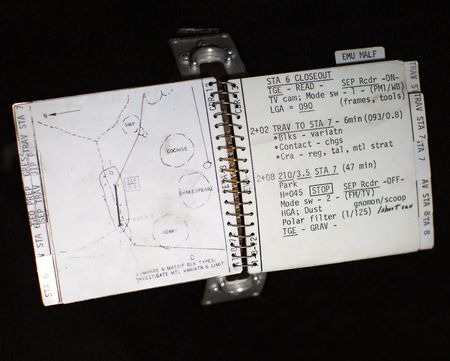 EMU MALF
STA 6 CLOSEOUT
TGE - READ - SEP Rcdr -ON-
TV cam; Mode sw - 1 - (PM1/WB)
LGA = 090 (frames, tools)
2+02 TRAV TO STA 7 - 6min (093/0.8)
*Blks - variatn
*Contact - chgs
*Cra - reg, tal, mtl strat
2+08 210/3.5 STA 7 (47 min)
Park SEP Rcdr -OFF-
H=045 STOP
Mode sw - 2 - (FM/TV)
HGA; Dust gnomon/scoop
Polar filter (1/125) /short can
TGE - GRAV -
TRAV STA 7
N
SWP
COCHISE
SHAKESPEARE
HENRY
210
3.5
COMPARE N MASSIF BLK TYPES,
INVESTIGATE MTL VARIATN & LIMIT